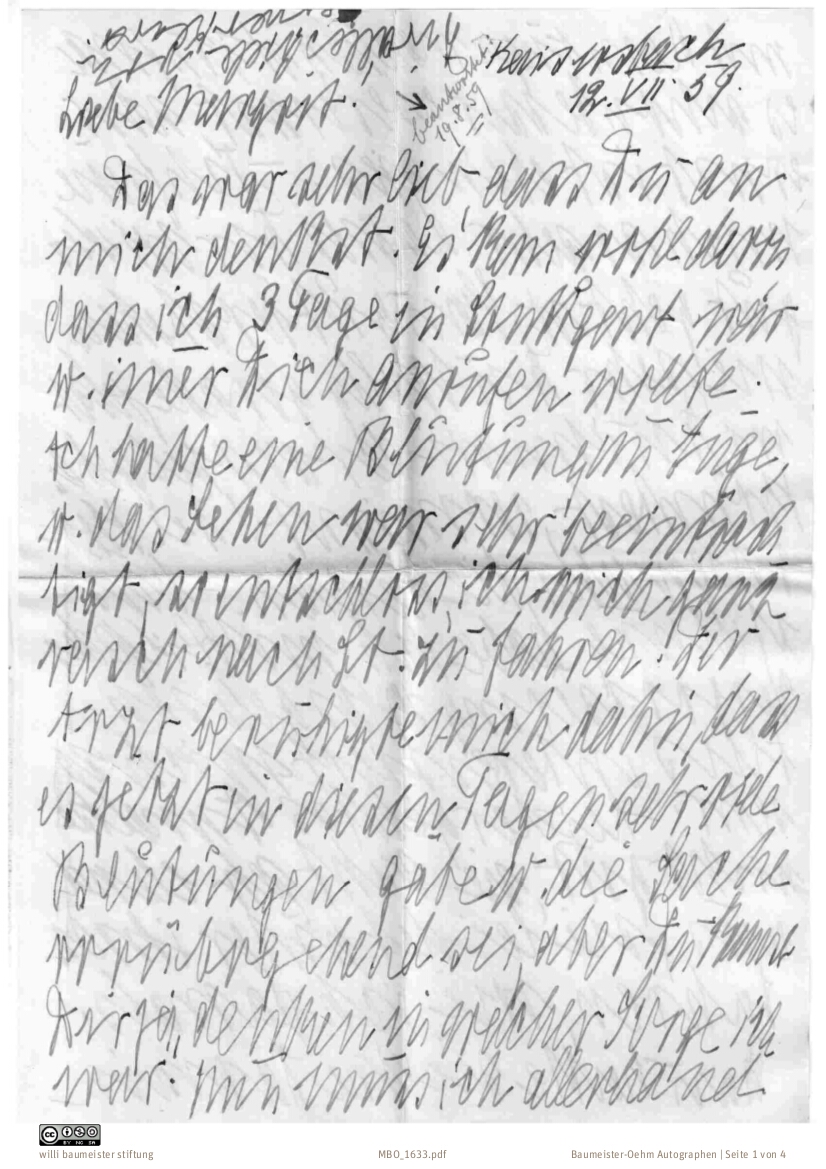 Kaisersbach
12. VII. 59.
beantwortet:
19.8.59
Liebe Margrit.
Das war sehr lieb dass Du an
mich denkst. Es kam wohl davon
dass ich 3 Tage in Stuttgart war
u. imer Dich anrufen wollte.
Ich hatte eine Blutung im Auge,
u. das Sehen war sehr beeinträch
tigt, so entschloss ich mich ganz
rasch nach St. zu fahren. Der
Arzt beruhigte mich dahin, dass
es jetzt in diesen Tagen sehr viele
Blutungen gäbe u. die Sache
vorübergehend sei, aber Du kannst
Dir ja denken in welcher Sorge ich
war. Nun muss ich allerhand
willi baumeister stiftung
MBO_1633.pdf
Baumeister-Oehm Autographen | Seite 1 von 4